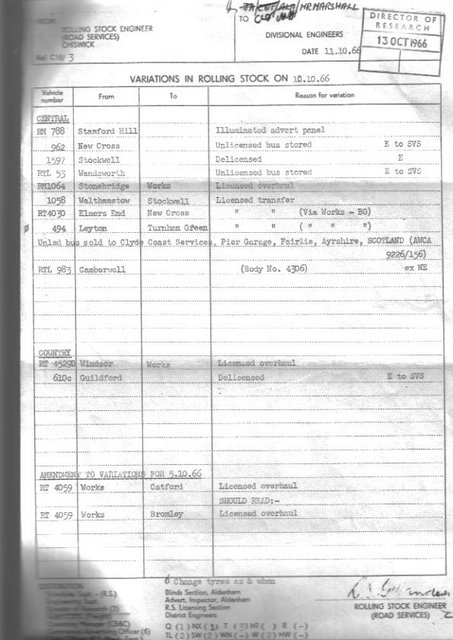 MR MARSHALL
FROM
ROLLING STOCK ENGINEER
(ROAD SERVICES)
CHISWICK
TO
DIVISIONAL ENGINEERS
DATE 11.10.66
DIRECTOR OF
RESEARCH
13 OCT 1966
VARIATIONS IN ROLLING STOCK ON 10.10.66
Vehicle number From To Reason for variation
CENTRAL
RM 788 Stamford Hill Illuminated advert panel
962 New Cross Unlicensed bus stored E to SVS
1597 Stockwell Delicensed E
RTL 53 Wandsworth Unlicensed bus stored E to SVS
RM1064 Stonebridge Works Licensed overhaul
1058 Walthamstow Stockwell Licensed transfer
RT4030 Elmers End New Cross " " (Via Works - BO)
ø 494 Leyton Turnham Green " " ( " " ")
Unlsd bus sold to Clyde Coast Services, Pier Garage, Fairlie, Ayrshire, SCOTLAND (AWCA
9226/156)
RTL 983 Camberwell (Body No. 4306) ex NE
COUNTRY
RT 4529B Windsor Works Licensed overhaul
610c Guildford Delicensed E to SVS
AMENDMENT TO VARIATIONS FOR 5.10.66
RT 4059 Works Catford Licensed overhaul
SHOULD READ:-
RT 4059 Works Bromley Licensed overhaul
ø Change tyres as & when
DISTRIBUTION
Blinds Section, Aldenham
Advert. Inspector, Aldenham
R.S. Licensing Section
District Engineers
ROLLING STOCK ENGINEER
(ROAD SERVICES)
Q (1) NX (1) T (3) HT ( ) R (-)
TL (2) SW (2) WN (-) W (2) HW (-)